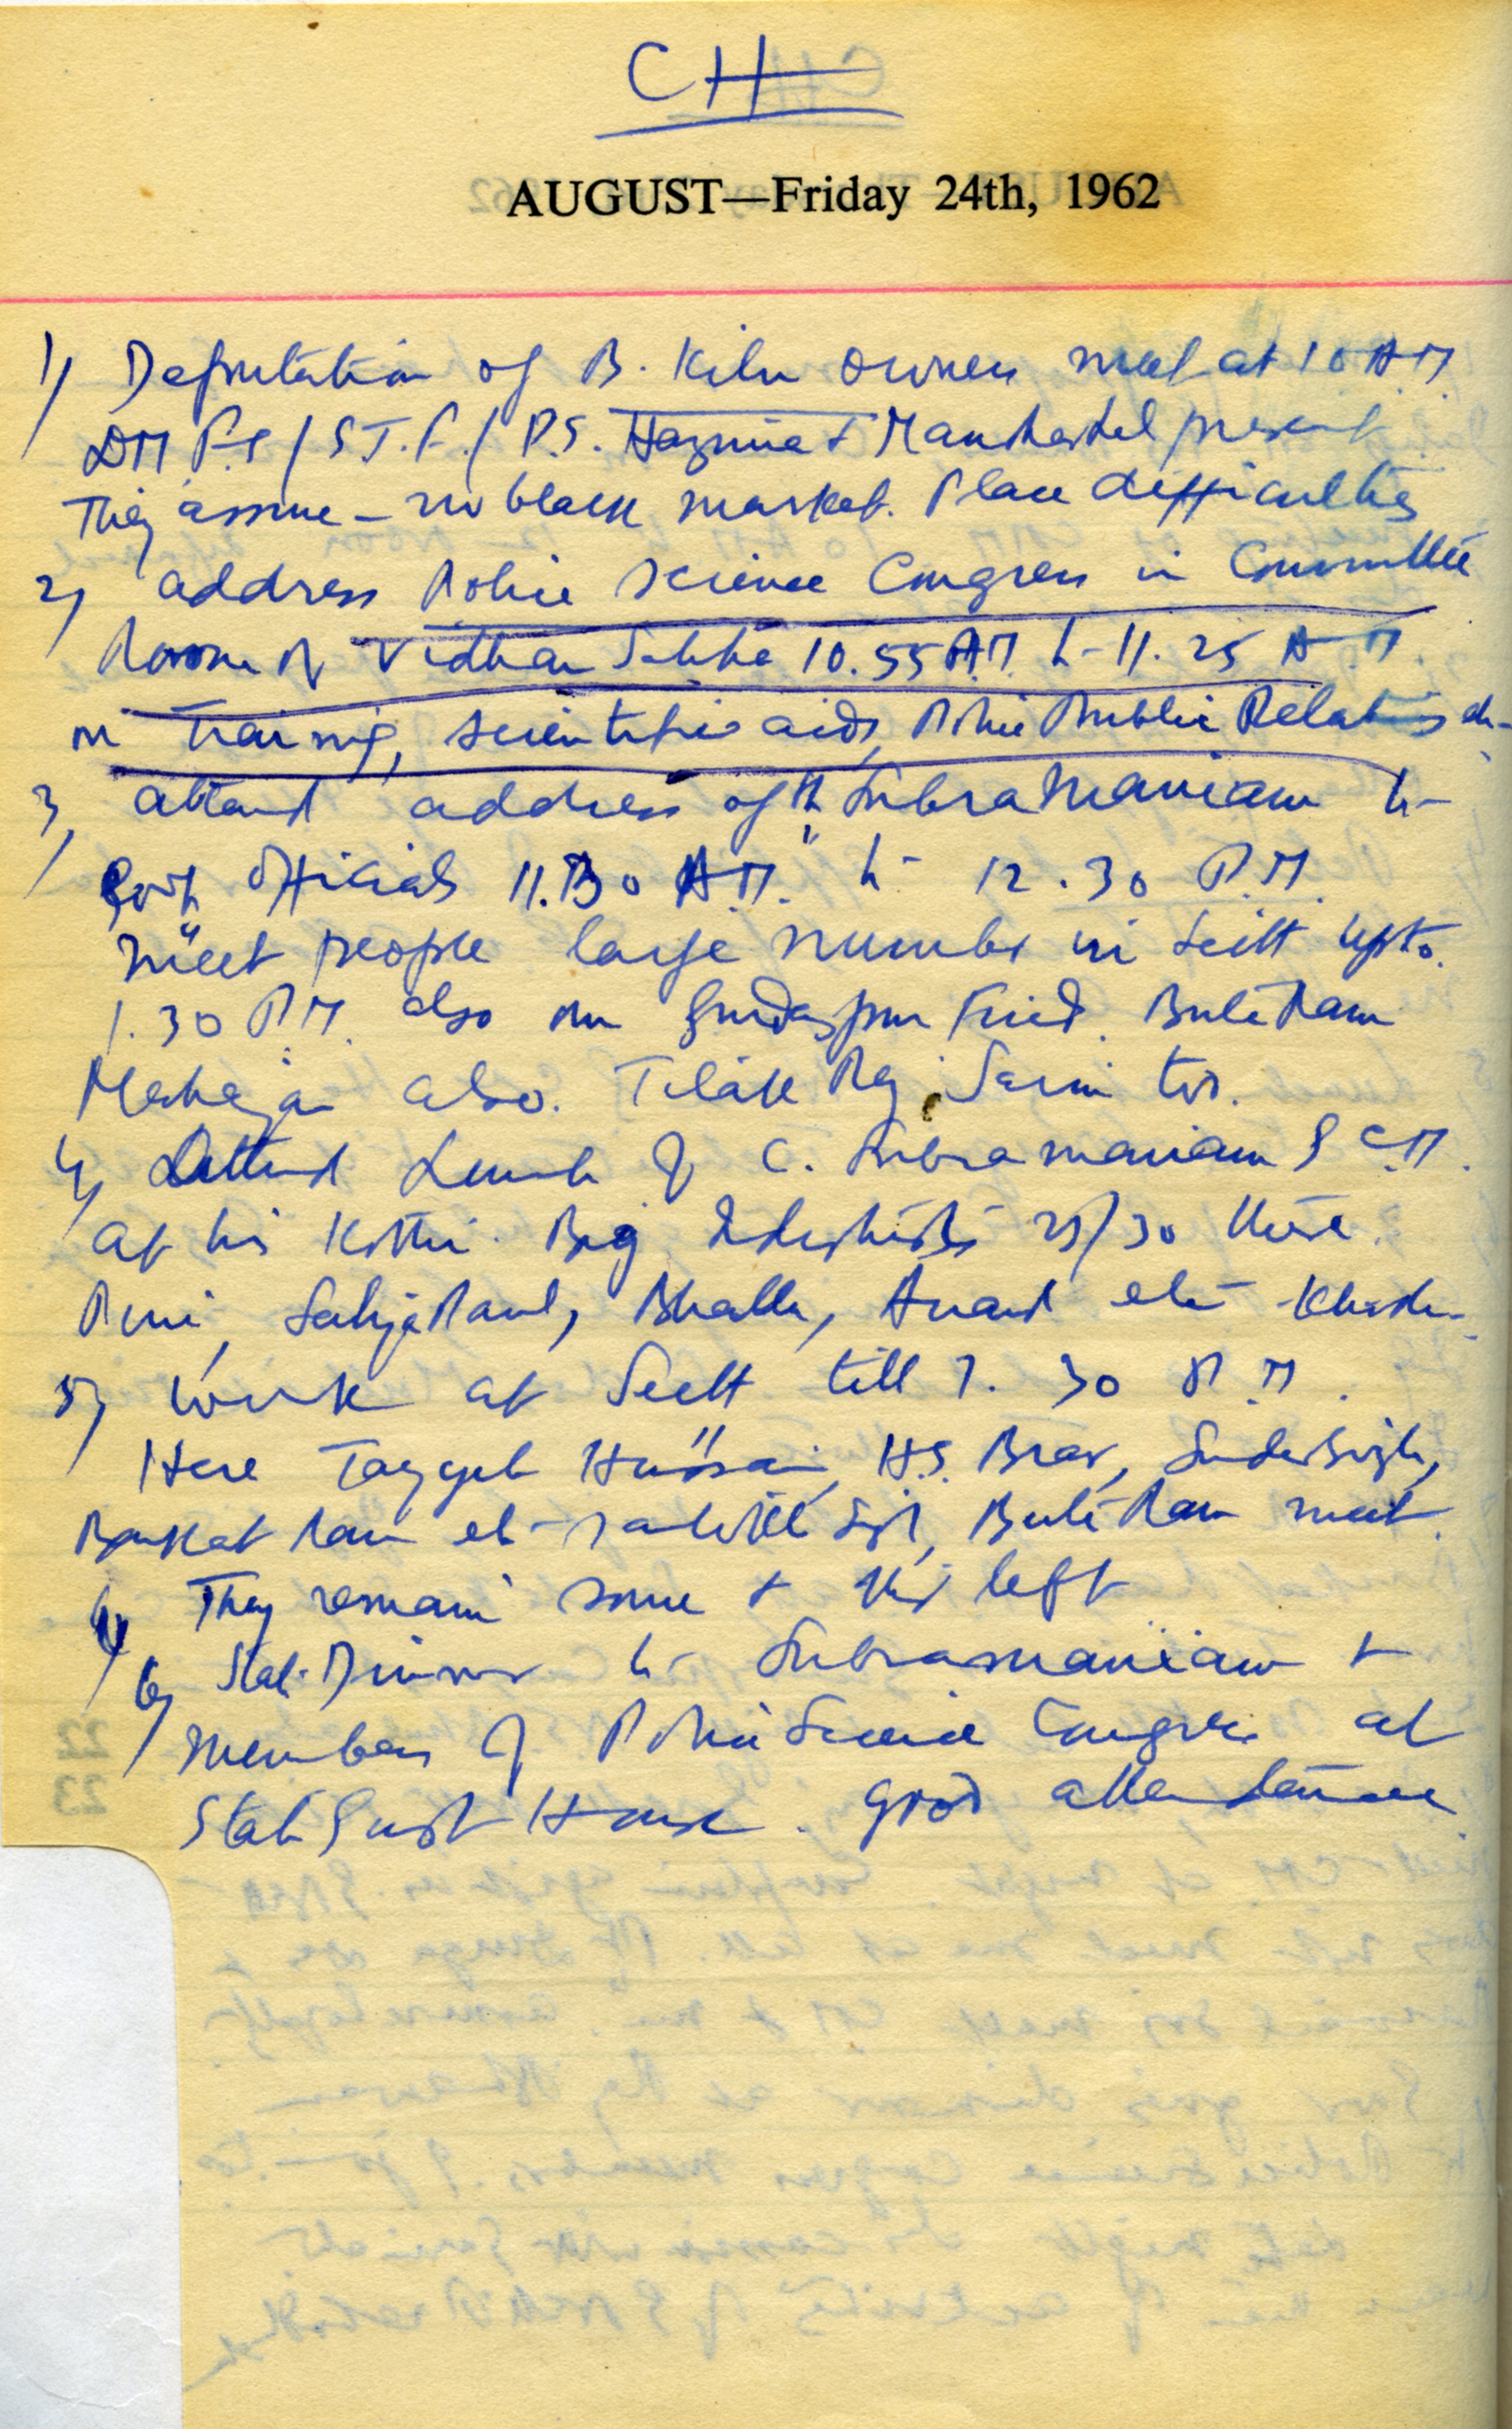 CH
AUGUST—Friday 24th, 1962
1) Deputation of B. Kiln Owners meet at 10 AM
DM F.S / S T.C. / P.S. & present
They assure - no black market. Place difficulties
2) address Police Science Congress in Committee
Room of Vidhan Sabha 10.55 A.M. to 11.25 A.M
on Training, scientific aids, Police Public Relations etc
3) attend address of Subramaniam to
Govt Officials 11.30 A.M. to 12.30 P.M.
meet people large number in Sectt upto
1.30 P.M. also on Gurdaspur Buta Ram
Mahajan also. Tilak Raj Saini too.
4) Attend Lunch of C. Subramaniam & C.M.
at his Kothi. Big Industrialists 25/30 there.
Puri, Bhalla, Anand etc
5) Work at Sectt till 7.30 P.M.
Here Tayyeb Hussain, H.S. Brar, Sunder Singh,
Barkat Ram etc Singh, Buta Ram meet.
They remain some & left
6) State Dinner to Subramaniam &
members of Police Science Congress at
State Guest House. good attendance
22
23